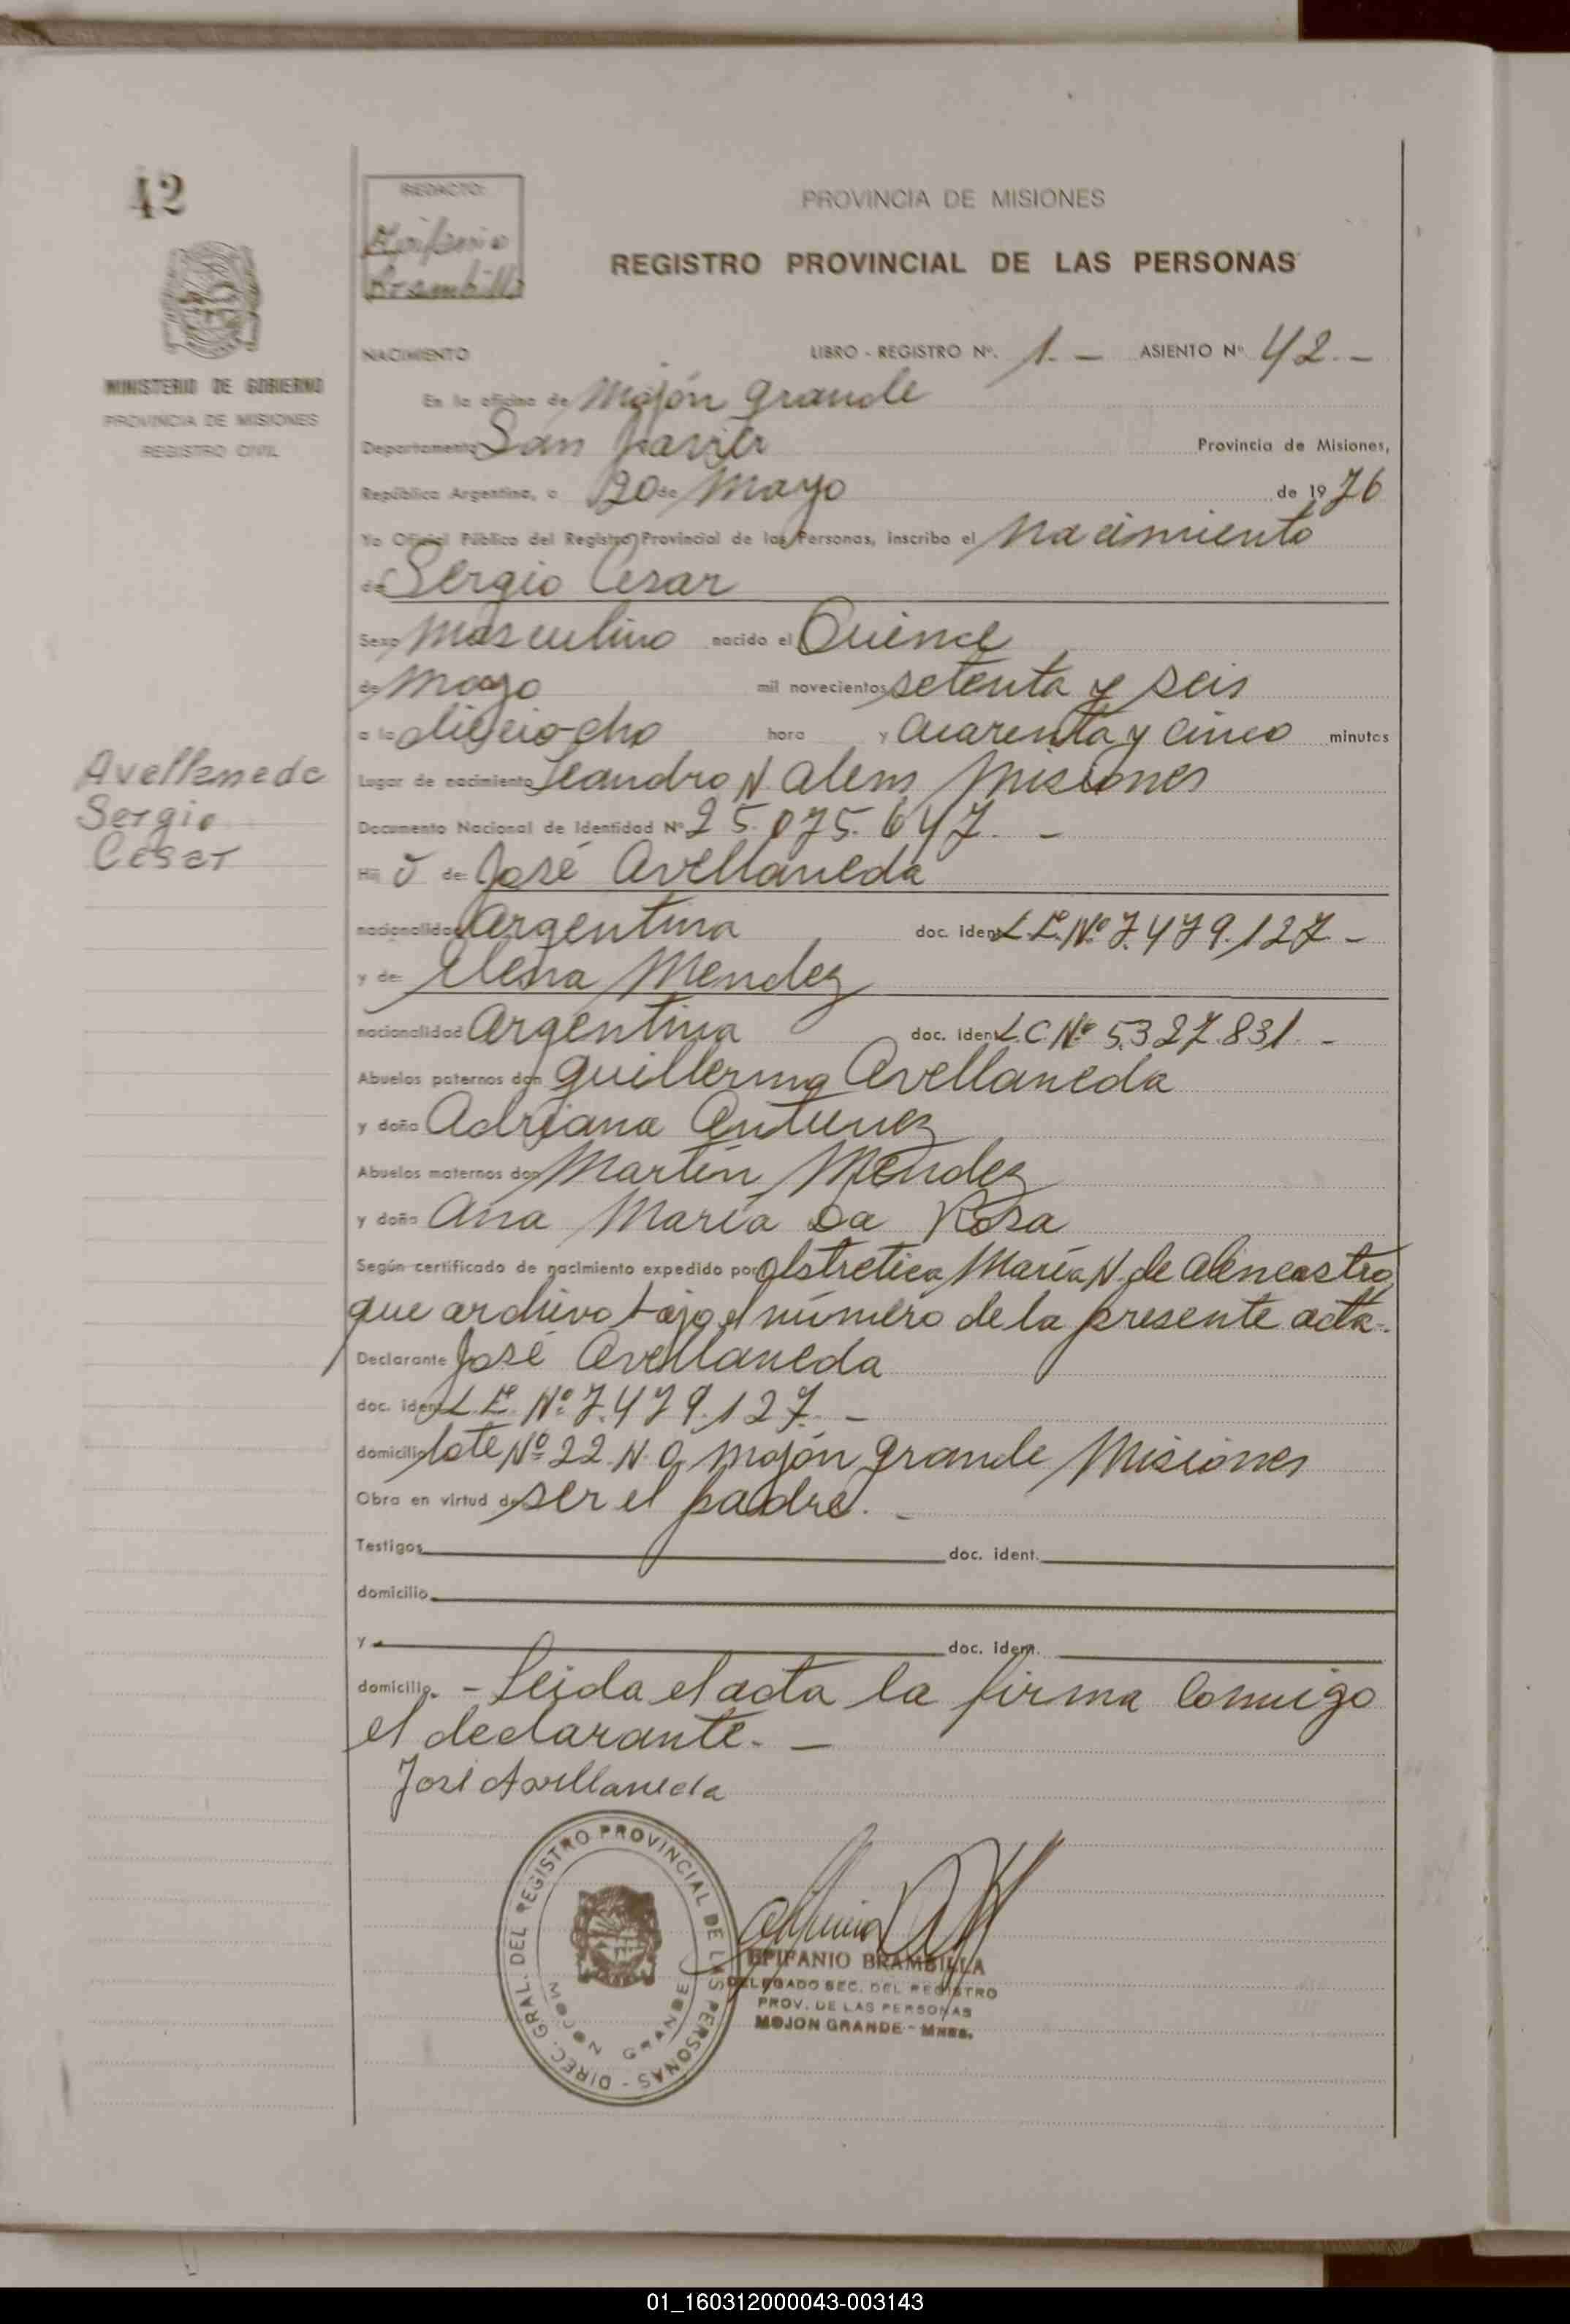 42
REDACTO:
Epifanio
Brambilla
PROVINCIA DE MISIONES
REGISTRO PROVINCIAL DE LAS PERSONAS
MINISTERIO DE GOBIERNO
PROVINCIA DE MISIONES
REGISTRO CIVIL
NACIMIENTO LIBRO - REGISTRO Nº. 1.- ASIENTO Nº 42.-
En la oficina de Mojón Grande
Departamento San Javier Provincia de Misiones,
República Argentina, a 20 de Mayo de 1976
Yo Oficial Público del Registro Provincial de las Personas, inscribo el Nacimiento
de Sergio Cesar
Sexo Masculino nacido el Quince
de Mayo mil novecientos setenta y seis
a las dieciocho hora y cuarenta y cinco minutos
Avellaneda
Sergio
Cesar
Lugar de nacimiento Leandro N. Alem Misiones
Documento Nacional de Identidad Nº 25.075.647.-
Hijo de: José Avellaneda
nacionalidad Argentina doc. ident. L.E. Nº 7.479.127.-
y de: Elena Mendez
nacionalidad Argentina doc. ident. L.C. Nº 5.327.831.-
Abuelos paternos don Guillermo Avellaneda
y doña Adriana Antunez
Abuelos maternos don Martín Mendez
y doña Ana María Da Rosa
Según certificado de nacimiento expedido por Obstretica María N. de Alencastro,
que archivo bajo el número de la presente acta.-
Declarante José Avellaneda
doc. ident. L.E. Nº 7.479.127.-
domicilio lote Nº 22 N.O. Mojón Grande Misiones
Obra en virtud de ser el padre.-
Testigos doc. ident.
domicilio
y doc. ident.
domicilio. - Leida el acta la firma Comigo
el declarante.-
José Avellaneda
DIREC. GRAL. DEL REGISTRO PROVINCIAL DE LAS PERSONAS -
MOJON GRANDE
EPIFANIO BRAMBILLA
DELEGADO SEC. DEL REGISTRO
PROV. DE LAS PERSONAS
MOJON GRANDE - MNES.
01_160312000043-003143